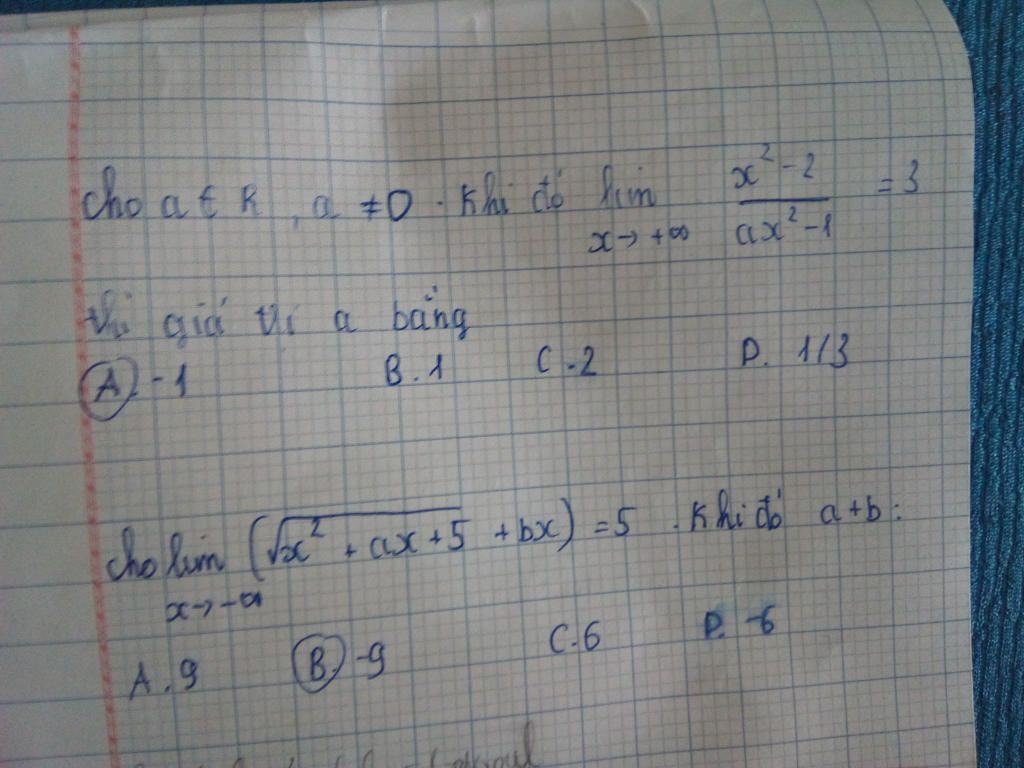 Cho a ∈ R, a ≠ 0. Khi đó lim x→+∞ (x² - 2)/(ax² - 1) = 3
thì giá trị a bằng
A. -1 B. 1 C. 2 D. 1/3
Cho lim x→-∞ (√(x² + ax + 5) + bx) = 5. Khi đó a+b:
A. 9 B. -9 C. 6 D. -6